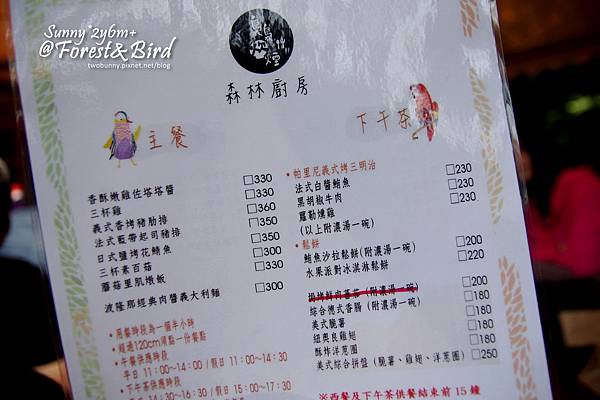 Sunny 2y6m+
@Forest&Bird
twobunny.pixnet.net/blog
森林廚房
主餐
香酥嫩雞佐塔塔醬 □330
三杯雞 □330
義式香烤豬肋排 □360
法式藍帶起司豬排 □350
日式鹽烤花鯖魚 □350
三杯素百菇 □300
蘑菇里肌燉飯 □330
波隆那經典肉醬義大利麵 □300
•用餐時段為一個半小時
•超過120cm須點一份餐點
•午餐供應時段
平日 11:00~14:00 / 假日 11:00~14:30
•下午茶供應時段
下午茶
•帕里尼義式烤三明治
法式白醬鮪魚 □230
黑胡椒牛肉 □230
羅勒燻雞 □230
(以上附濃湯一碗)
•鬆餅
鮪魚沙拉鬆餅(附濃湯一碗) □200
水果派對冰淇淋鬆餅 □220
(附濃湯一碗) □200
綜合德式香腸 (附濃湯一碗) □180
美式脆薯 □180
紐奧良雞翅 □180
酥炸洋蔥圈 □180
美式綜合拼盤 (脆薯、雞翅、洋蔥圈) □250
※西餐及下午茶供餐結束前15鐘